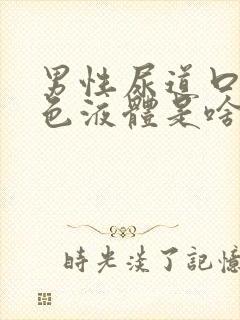 男性尿道口
色液體是啥
時光淡了記憶